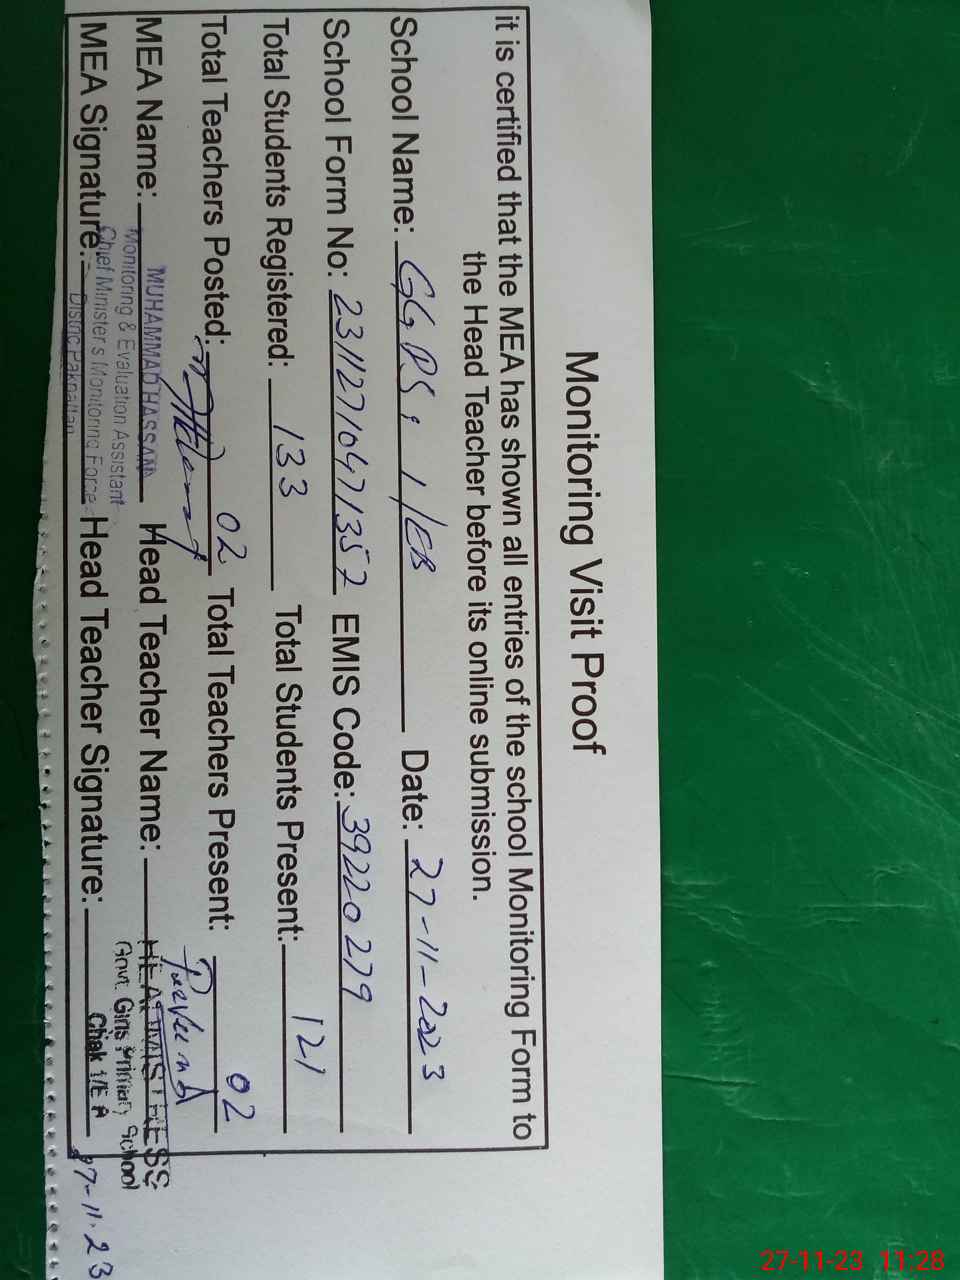 Monitoring Visit Proof
it is certified that the MEA has shown all entries of the school Monitoring Form to
the Head Teacher before its online submission.
School Name: GGPS, 1/EB Date: 27-11-2023
School Form No: 231127104713 52 EMIS Code: 39220279
Total Students Registered: 133 Total Students Present: 121
Total Teachers Posted: 02 Total Teachers Present: 02
MEA Name: MUHAMMAD HASSAN Head Teacher Name: HEADMISTRESS
Monitoring & Evaluation Assistant Govt. Girls Primary School
Chief Minister's Monitoring Force Chak 1/E
MEA Signature: Head Teacher Signature: 27-11-23
District Pakpattan
27-11-23 11:28